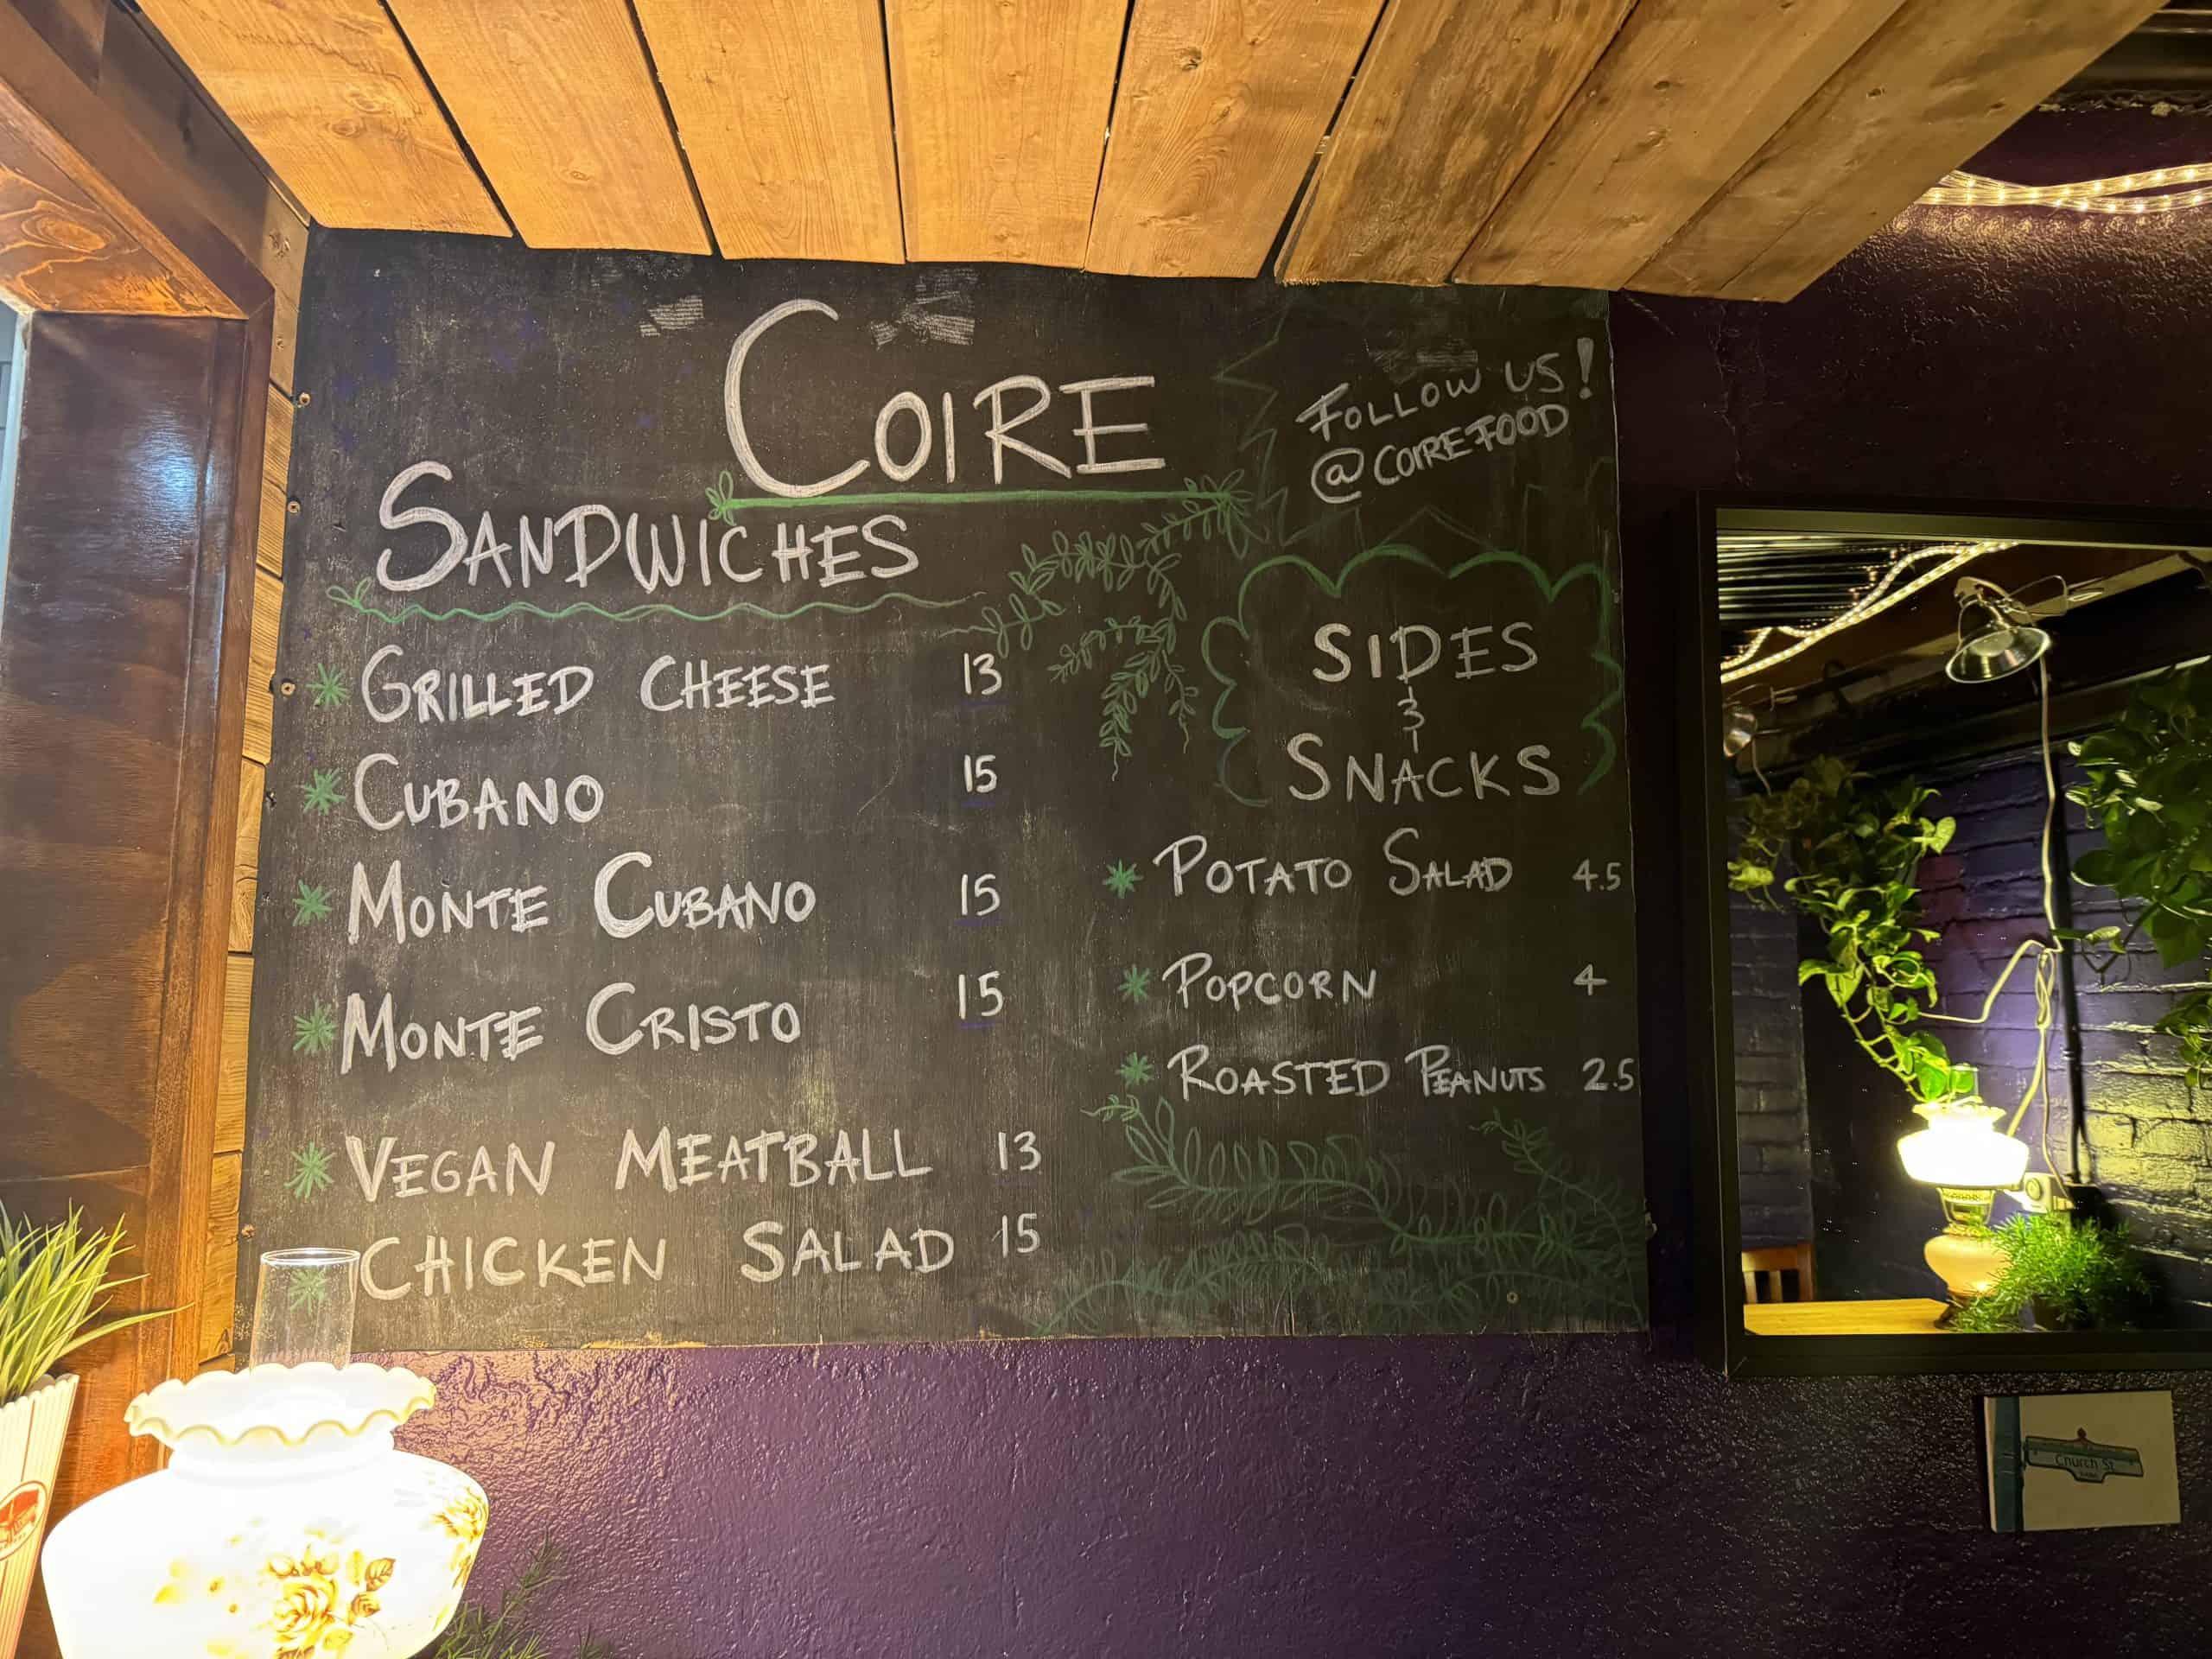 COIRE
FOLLOW US!
@COIREFOOD
SANDWICHES
GRILLED CHEESE 13
CUBANO 15
MONTE CUBANO 15
MONTE CRISTO 15
VEGAN MEATBALL 13
CHICKEN SALAD 15
SIDES
&
SNACKS
POTATO SALAD 4.5
POPCORN 4
ROASTED PEANUTS 2.5
Church St